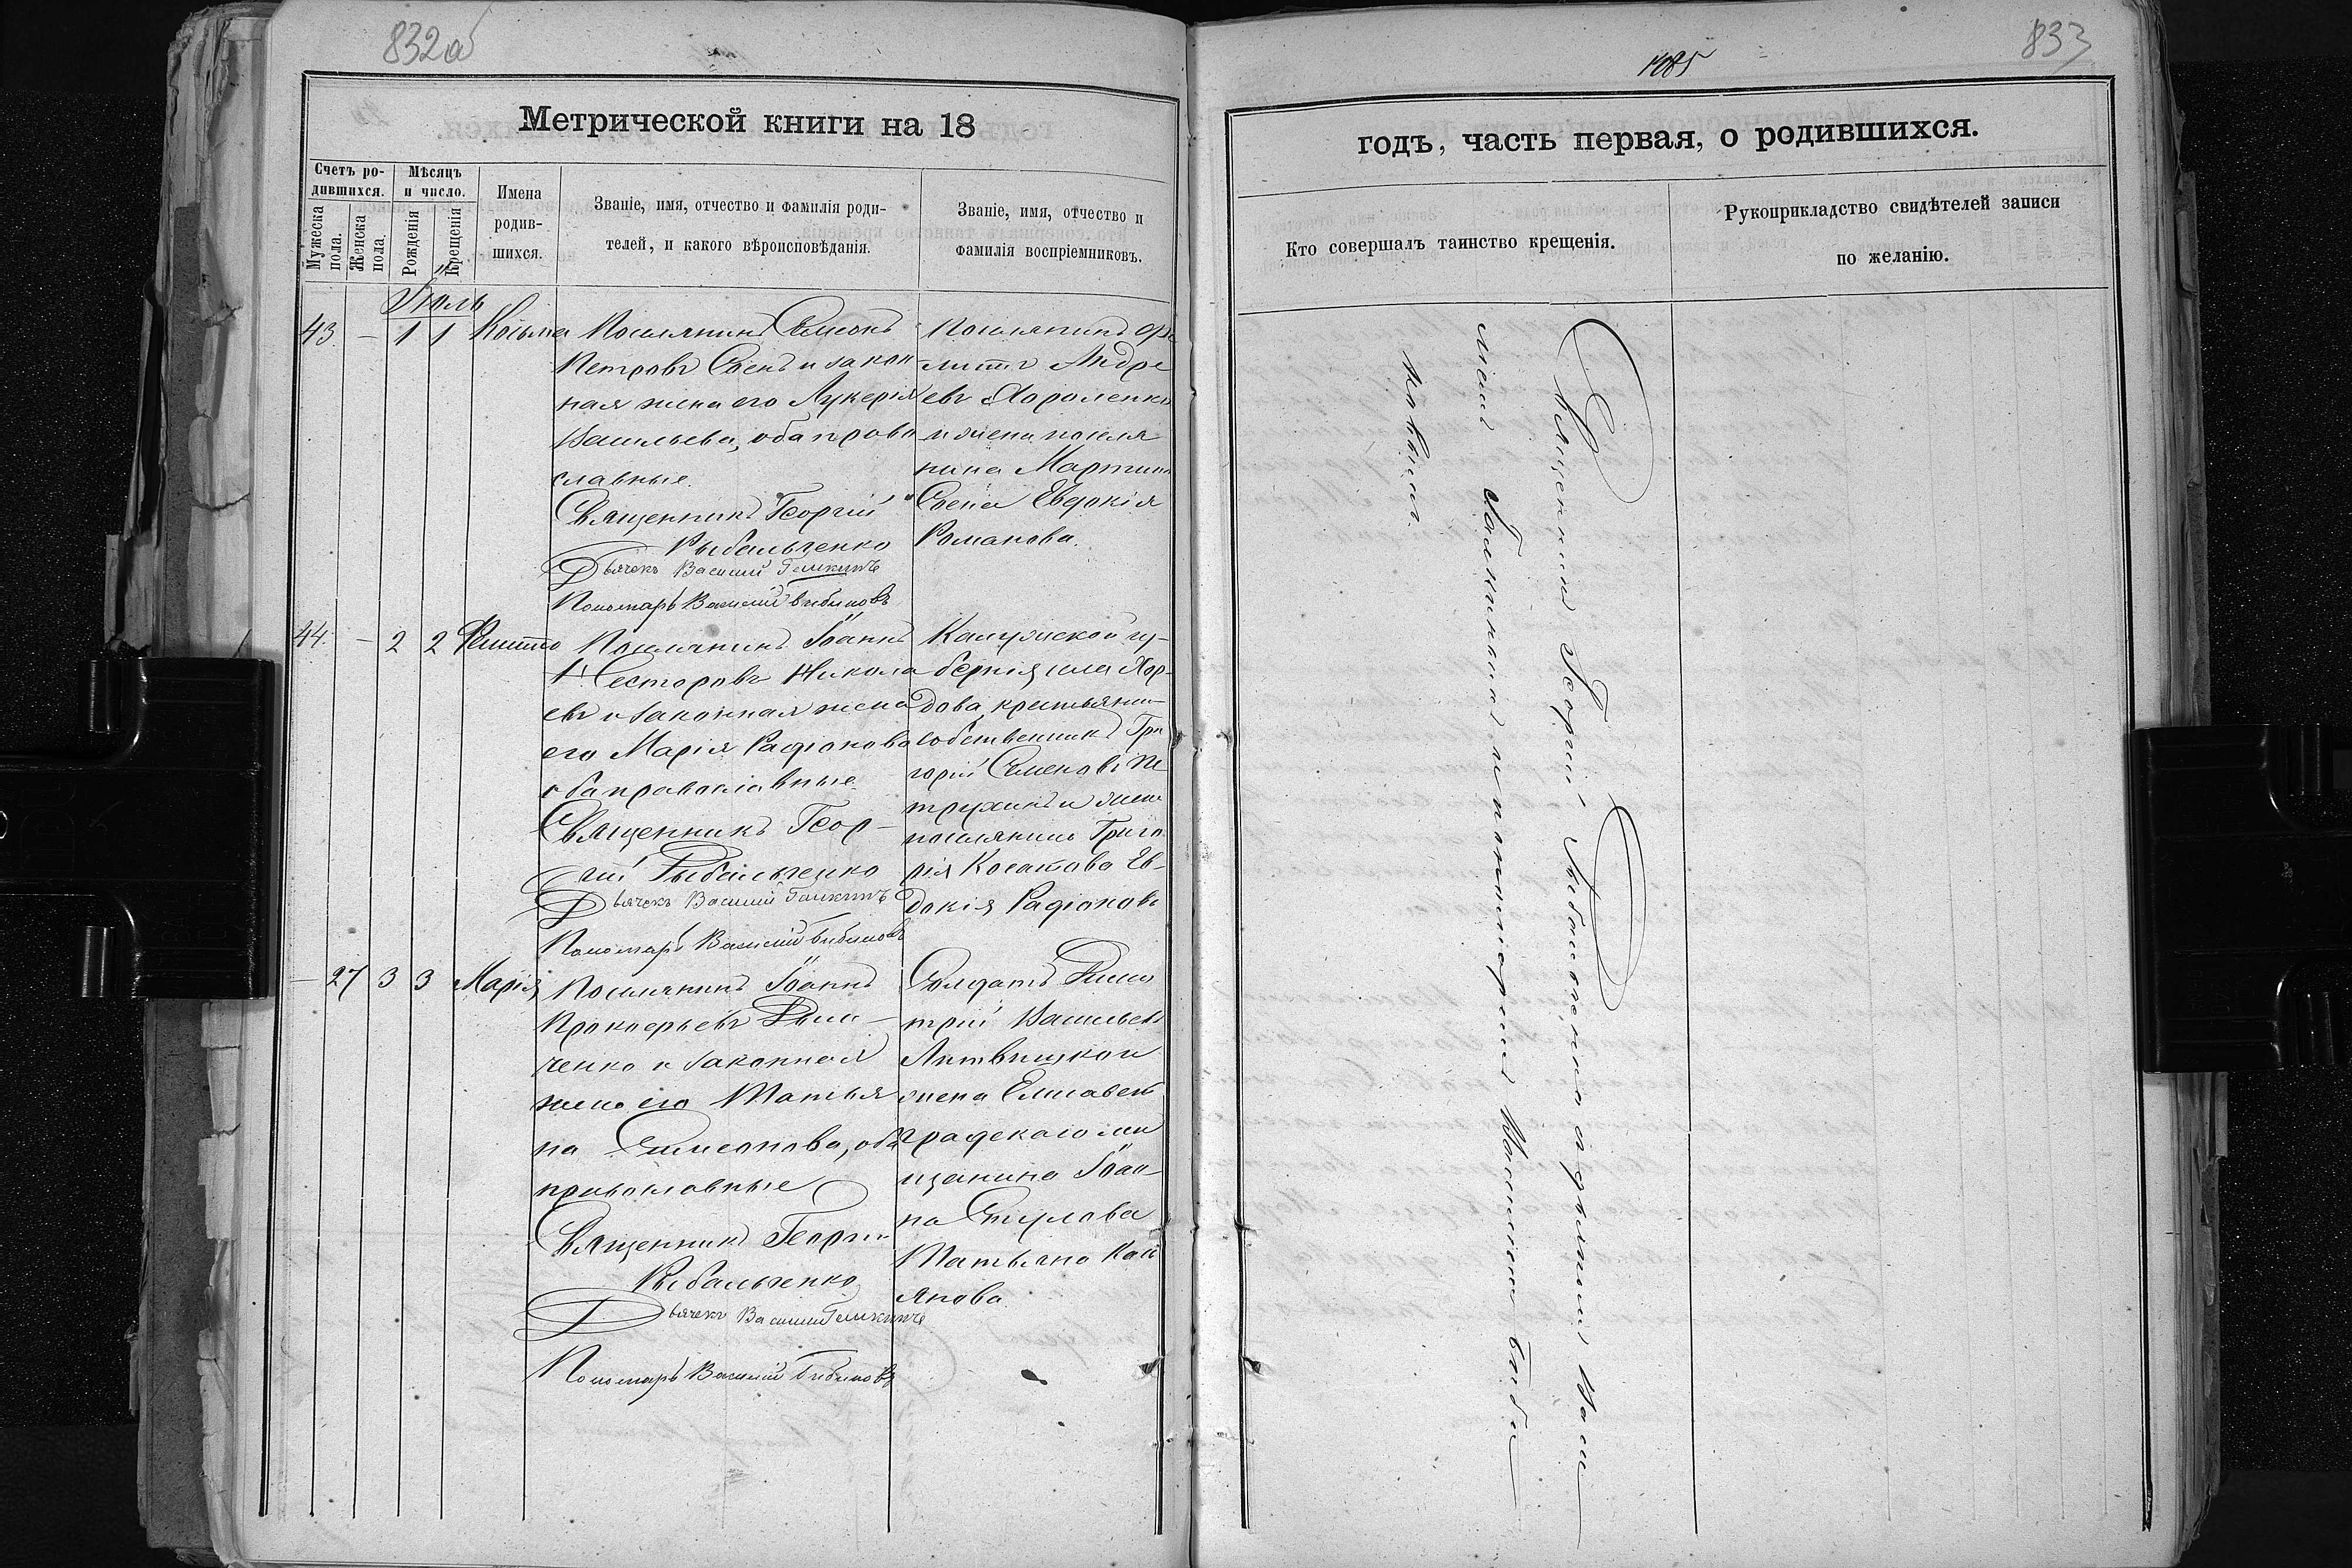 832об
Метрической книги на 18
Счетъ ро-
дившихся.
Мужеска пола.
Женска пола.
Мѣсяцъ
и число.
Рожденія
Крещенія
Имена
родив-
шихся.
Званіе, имя, отчество и фамилія роди-
телей, и какого вѣроисповѣданія.
Званіе, имя, отчество и
фамилія воспріемниковъ.
Іюль
43. – 1 1 Косьма
Поселянинъ Симеонъ
Петровъ Свенъ и закон
ная жена его Лукерія
Васильева, оба право
славные.
Священникъ Георгій
Рыбальченко
Дьячекъ Василій Галкинъ
Пономарь Василій Бибиковъ
Поселянинъ
Андре
евъ
и жена поселя
нина Мартина
Свена Евдокія
Романова.
44. – 2 2
Поселянинъ Іоаннъ
Несторовъ Никола
евъ и законная жена
его Марія Радіонова
оба православные.
Священникъ Геор-
гій Рыбальченко
Дьячекъ Василій Галкинъ
Пономарь Василій Бибиковъ
Калужской гу-
берніи села
дова, крестьянинъ
собственникъ Гри
горій Семеновъ Пе
трухинъ и жена
поселянина Григо
рія Косакова Ев-
докія Радіонова
– 27 3 3 Марія
Поселянинъ Іоаннъ
Прокофьевъ
ченко и законная
жена его Татья
на Симеонова, оба
православные
Священникъ Георгій
Рыбальченко
Дьячекъ Василій Галкинъ
Пономарь Василій Бибиковъ
Солдатъ Дими
трій Васильевъ
жена Елисавет
градскаго мѣ
щанина Іоан-
на
Татьяна Кас
янова
833
1085
годъ, часть первая, о родившихся.
Кто совершалъ таинство крещенія.
Рукоприкладство свидѣтелей записи
по желанію.
Священникъ Георгій Рыбальченко съ дьячкомъ Васи
ліемъ Галкинымъ и пономаремъ Василіемъ Биби
ковымъ.